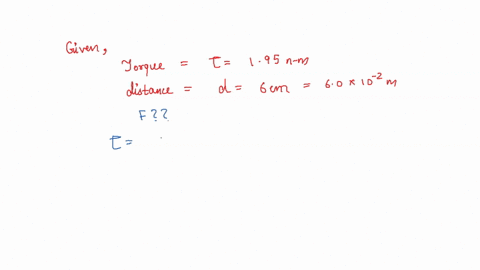 Given,
Torque = τ = 1.95 n-m
distance = d = 6cm = 6.0 × 10⁻² m
F ??
τ =